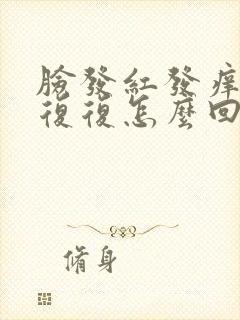 臉發紅發痒
復復怎麼回
脩身